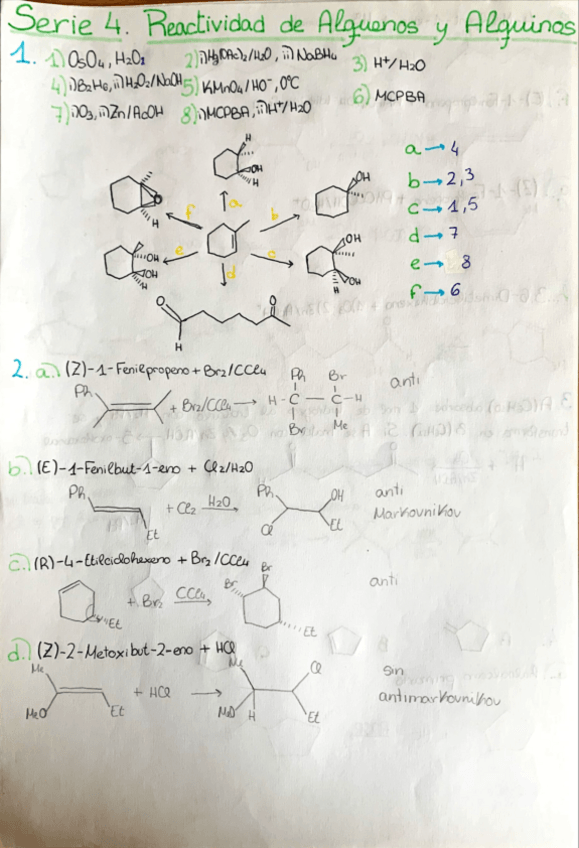 Serie 4. Reactividad de Alquenos y Alquinos
1. 1) OsO4, H2O2 2) i) Hg(OAc)2/H2O, ii) NaBH4 3) H+/H2O
4) i) B2H6, ii) H2O2/NaOH 5) KMnO4/HO-, 0°C 6) MCPBA
7) i) O3, ii) Zn/AcOH 8) i) MCPBA, ii) H+/H2O
H OH H a a → 4
O H f b OH b → 2,3
c → 1,5
OH OH H e d c OH OH H d → 7
e → 8
O H O f → 6
2. a.) (Z)-1-Fenilpropeno + Br2/CCl4
Ph + Br2/CCl4 → Ph Br H-C-C-H Br Me anti
b.) (E)-1-Fenilbut-1-eno + Cl2/H2O
Ph Et + Cl2 H2O → Ph OH Cl Et anti
Markovnikov
c.) (R)-4-Etilciclohexeno + Br2/CCl4
Et + Br2 CCl4 → Br Br Et anti
d.) (Z)-2-Metoxibut-2-eno + HCl
Me MeO Et + HCl → Me MeO H Cl Et sin
antimarkovnikov